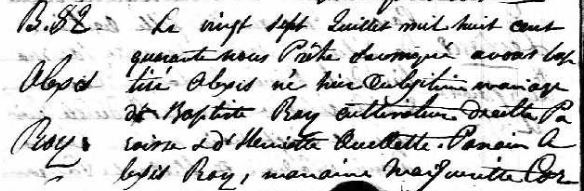 B. 82 Le vingt sept Juillet mil huit cent
quarante nous Prêtre soussigné avons bap
Alexis tisé Alexis né hier du légitime mariage
de Baptiste Roy cultivateur de cette Pa
Roy. roisse & d'Henriette Ouellette. Parain A
lexis Roy, maraine Marguerite Cor